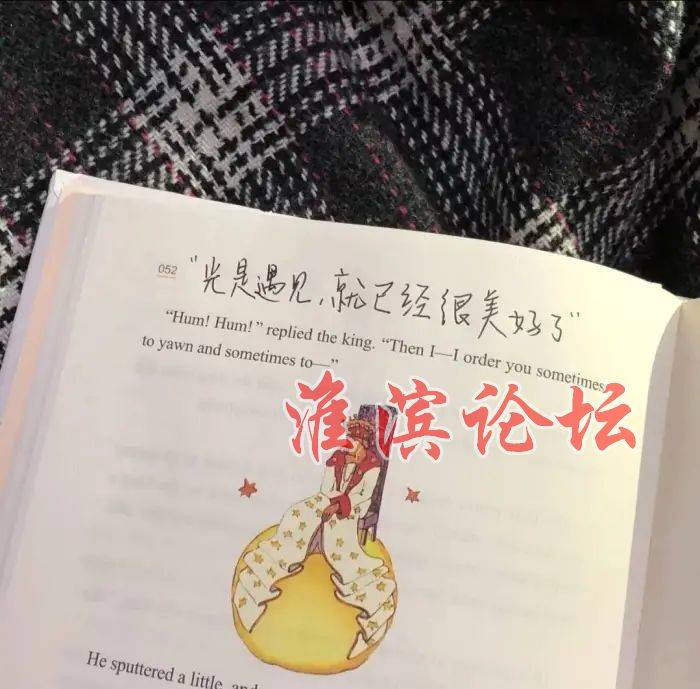 052
“光是遇见，就已经很美好了”
“Hum! Hum!” replied the king. “Then I—I order you sometimes
to yawn and sometimes to—”
淮滨论坛
He sputtered a little, and